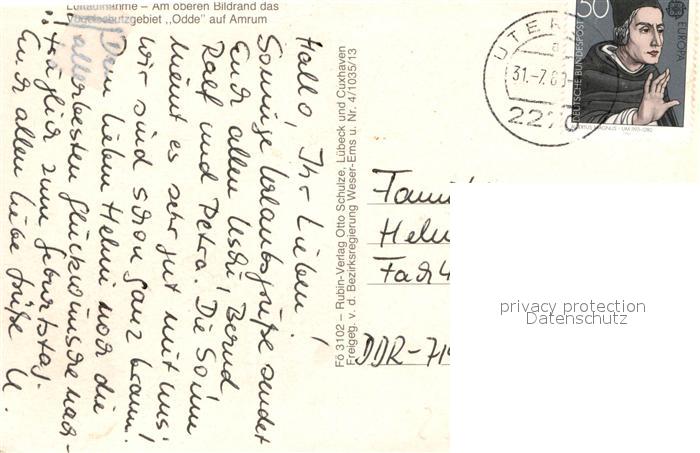 Luftaufnahme – Am oberen Bildrand das
Vogelschutzgebiet „Odde" auf Amrum
Hallo, Ihr Lieben!
Sonnige Urlaubsgrüße sendet
Euch allen Uschi, Bernd
Ralf und Petra. Die Sonne
meint es sehr gut mit uns:
wir sind schon ganz braun!
Dem lieben Helmi noch die
allerbesten Glückwünsche nach-
träglich zum Geburtstag.
Euch allen liebe Grüße U.
Fö 3102 – Rubin-Verlag Otto Schulze, Lübeck und Cuxhaven
Freigeg. v. d. Bezirksregierung Weser-Ems u. Nr. 4/1035/13
UTER
a
31.-7.80
2270
50
DEUTSCHE BUNDESPOST
EUROPA
ALBERTUS MAGNUS · UM 1193-1280
Fam
Helm
Fach 4
DDR-71
privacy protection
Datenschutz